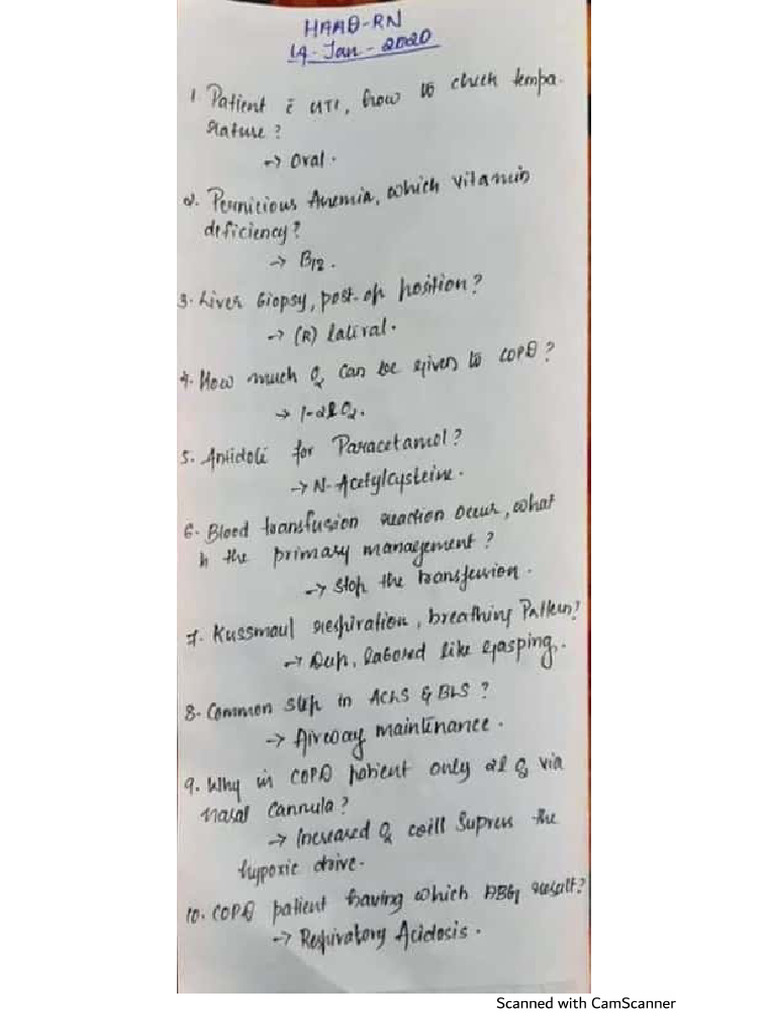 HAAD-RN
14-Jan-2020
1. Patient c̄ UTI, how to check tempa-
rature?
→ Oral.
2. Pernicious Anemia, which vitamin
deficiency?
→ B12.
3. Liver biopsy, post-op position?
→ (R) lateral.
4. How much O2 can be given to COPD?
→ 1-2l O2.
5. Antidote for Paracetamol?
→ N-Acetylcysteine.
6. Blood transfusion reaction occur, what
is the primary management?
→ stop the transfusion.
7. Kussmaul respiration, breathing Pattern?
→ Deep, labored like gasping.
8. Common step in ACLS & BLS?
→ Airway maintenance.
9. Why in COPD patient only 2l O2 via
nasal cannula?
→ Increased O2 will Supress the
hypoxic drive.
10. COPD patient having which ABG result?
→ Respiratory Acidosis.
Scanned with CamScanner